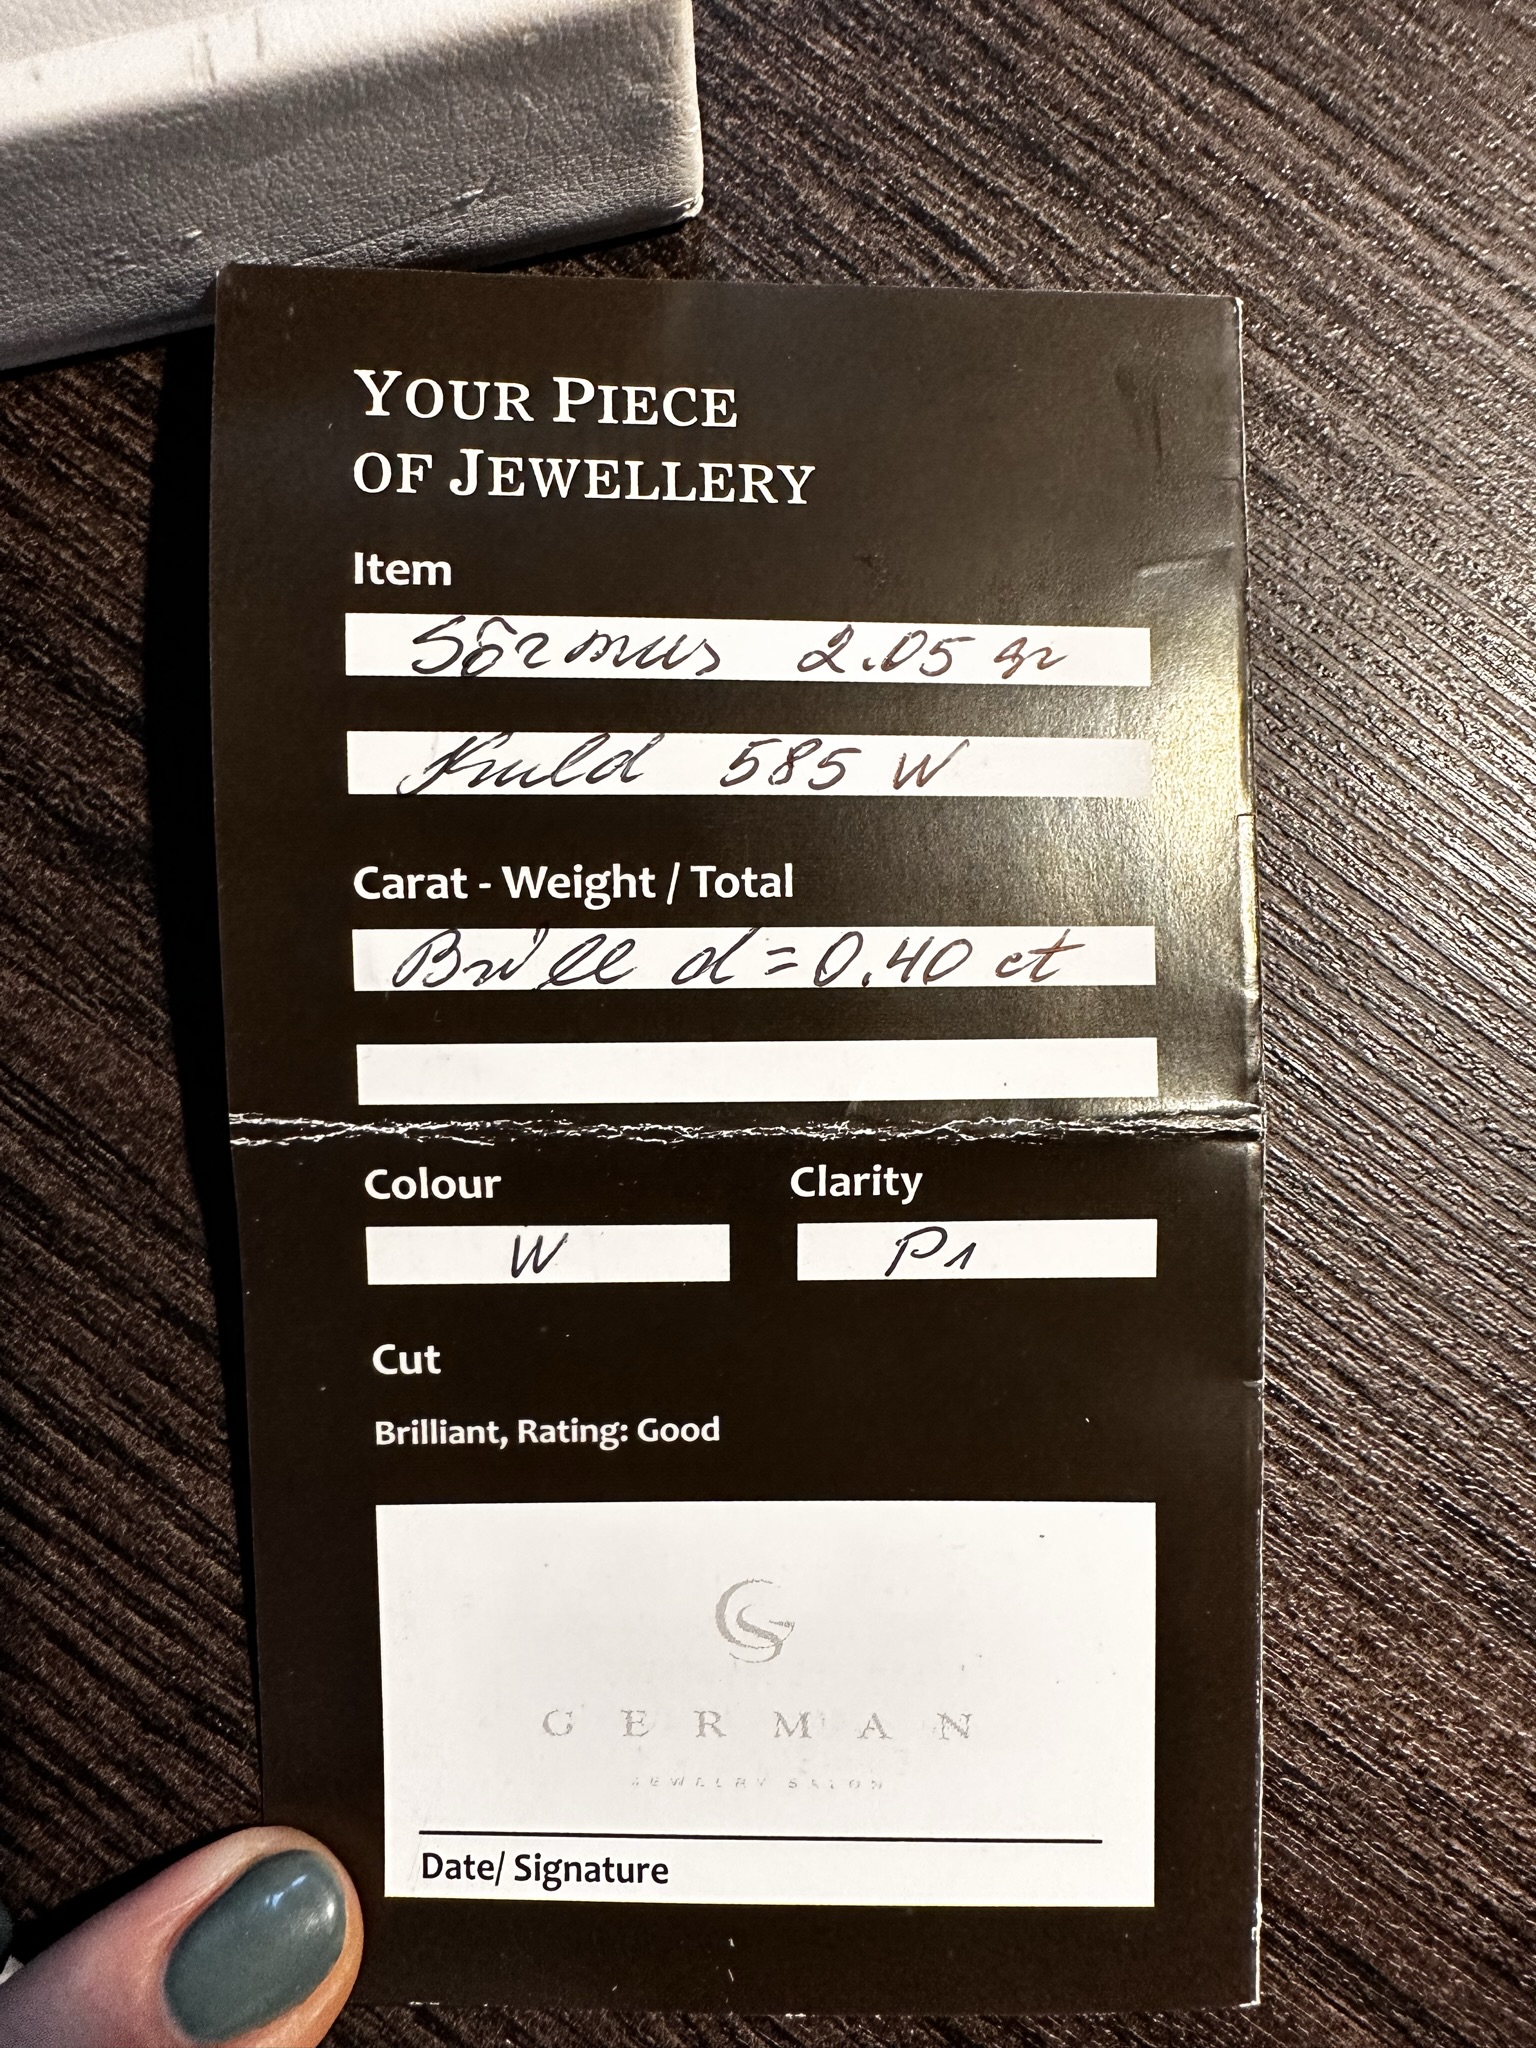 YOUR PIECE
OF JEWELLERY
Item
Sõrmus 2.05 gr
Kuld 585 W
Carat - Weight / Total
Brill d=0.40 ct
Colour
Clarity
W
P1
Cut
Brilliant, Rating: Good
GS
GERMAN
JEWELRY SALON
Date/ Signature